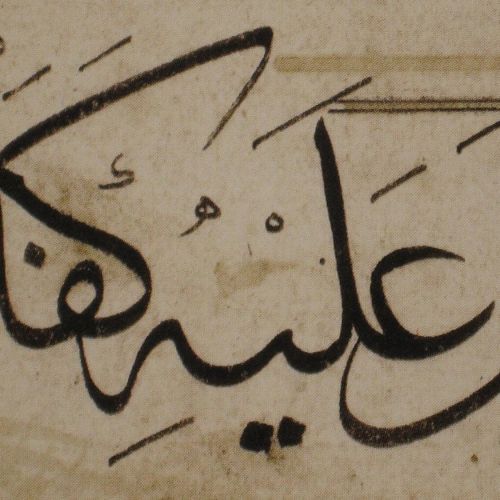 عَلَيْهِ كَفَا